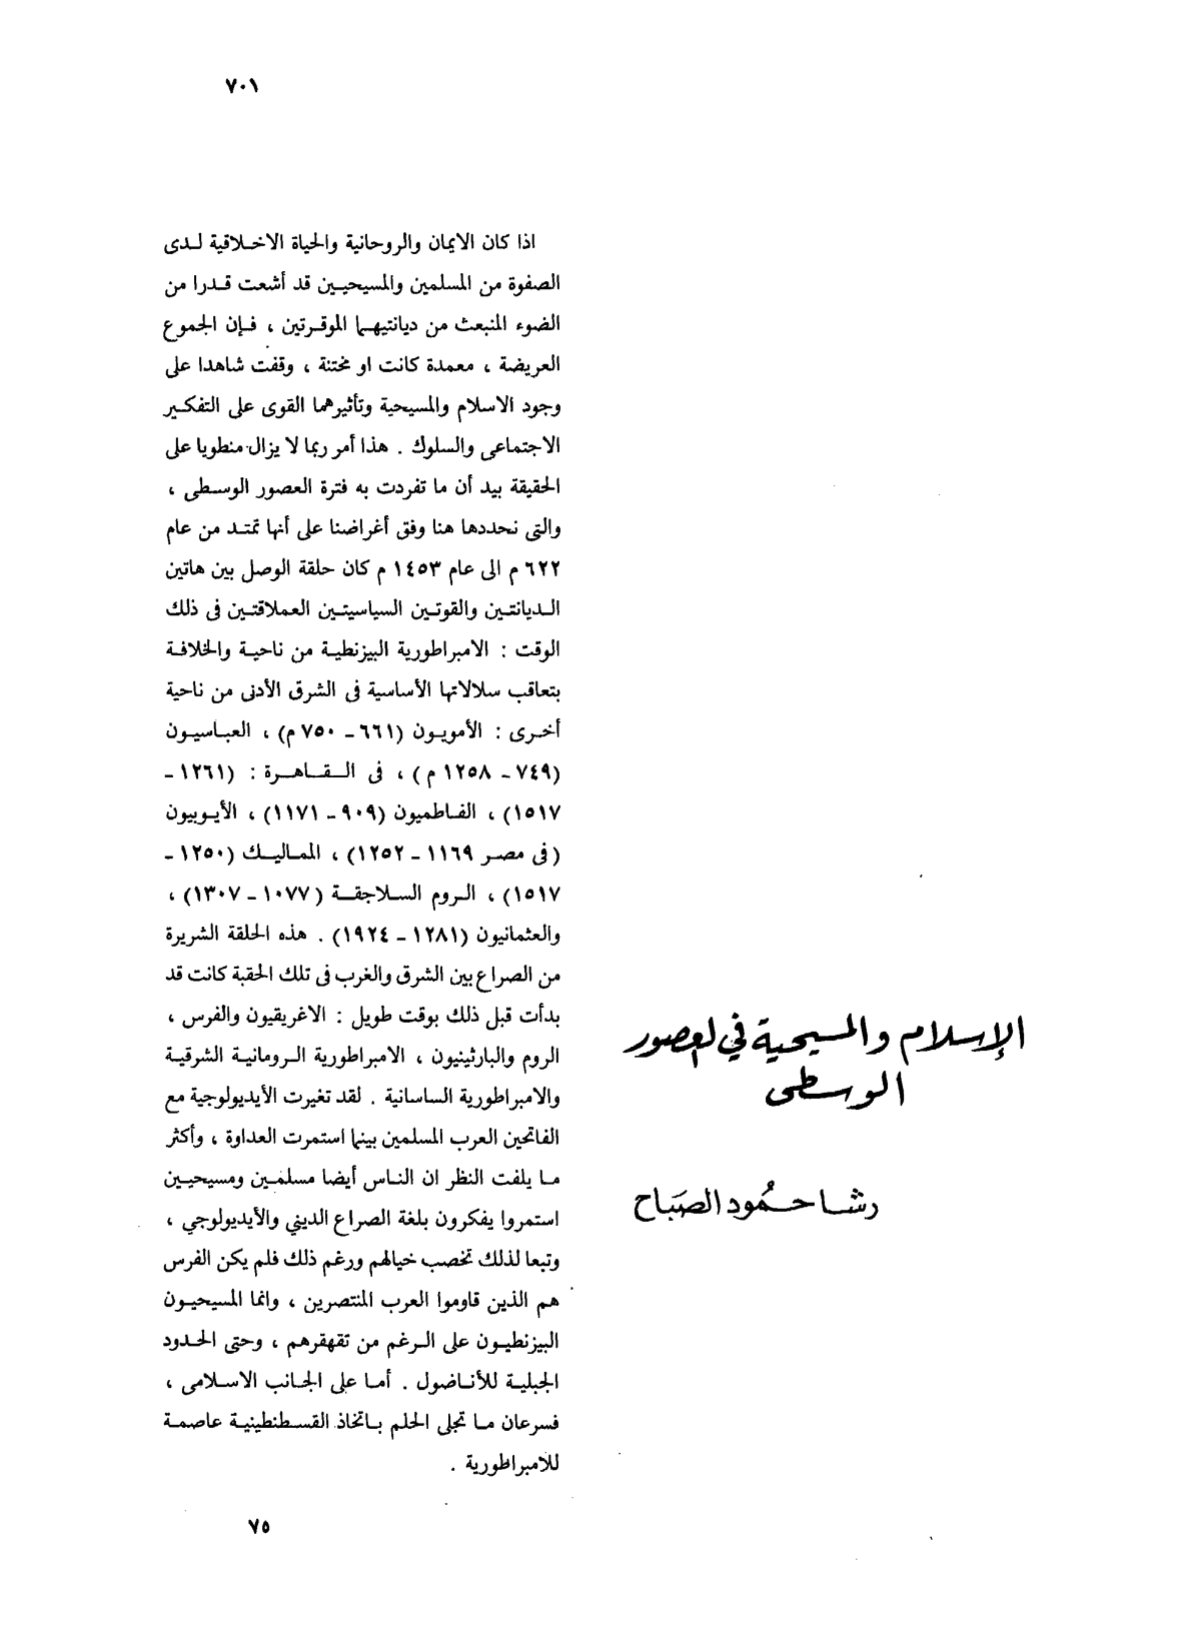 ٧٠١
الإسلام والمسيحية في العصور
الوسطى
رشا حمُود الصَباح
اذا كان الايمان والروحانية والحياة الاخلاقية لدى
الصفوة من المسلمين والمسيحيين قد أشعت قدرا من
الضوء المنبعث من ديانتيهما الموقرتين ، فإن الجموع
العريضة ، معمدة كانت او مختنة ، وقفت شاهدا على
وجود الاسلام والمسيحية وتأثيرهما القوى على التفكير
الاجتماعى والسلوك . هذا أمر ربما لا يزال منطويا على
الحقيقة بيد أن ما تفردت به فترة العصور الوسطى ،
والتى نحددها هنا وفق أغراضنا على أنها تمتد من عام
٦٢٢ م الى عام ١٤٥٣ م كان حلقة الوصل بين هاتين
الديانتين والقوتين السياسيتين العملاقتين فى ذلك
الوقت : الامبراطورية البيزنطية من ناحية والخلافة
بتعاقب سلالاتها الأساسية فى الشرق الأدنى من ناحية
أخرى : الأمويون (٦٦١ - ٧٥٠ م) ، العباسيون
(٧٤٩ - ١٢٥٨ م) ، فى القاهرة : (١٢٦١ -
١٥١٧) ، الفاطميون (٩٠٩ - ١١٧١) ، الأيوبيون
(فى مصر ١١٦٩ - ١٢٥٢) ، المماليك (١٢٥٠ -
١٥١٧) ، الروم السلاجقة (١٠٧٧ - ١٣٠٧) ،
والعثمانيون (١٢٨١ - ١٩٢٤) . هذه الحلقة الشريرة
من الصراع بين الشرق والغرب فى تلك الحقبة كانت قد
بدأت قبل ذلك بوقت طويل : الاغريقيون والفرس ،
الروم والبارثينيون ، الامبراطورية الرومانية الشرقية
والامبراطورية الساسانية . لقد تغيرت الأيديولوجية مع
الفاتحين العرب المسلمين بينما استمرت العداوة ، وأكثر
ما يلفت النظر ان الناس أيضا مسلمين ومسيحيين
استمروا يفكرون بلغة الصراع الديني والأيديولوجي ،
وتبعا لذلك تخصب خيالهم ورغم ذلك فلم يكن الفرس
هم الذين قاوموا العرب المنتصرين ، وانما المسيحيون
البيزنطيون على الرغم من تقهقرهم ، وحتى الحدود
الجبلية للأناضول . أما على الجانب الاسلامى ،
فسرعان ما تجلى الحلم باتخاذ القسطنطينية عاصمة
للامبراطورية .
٧٥